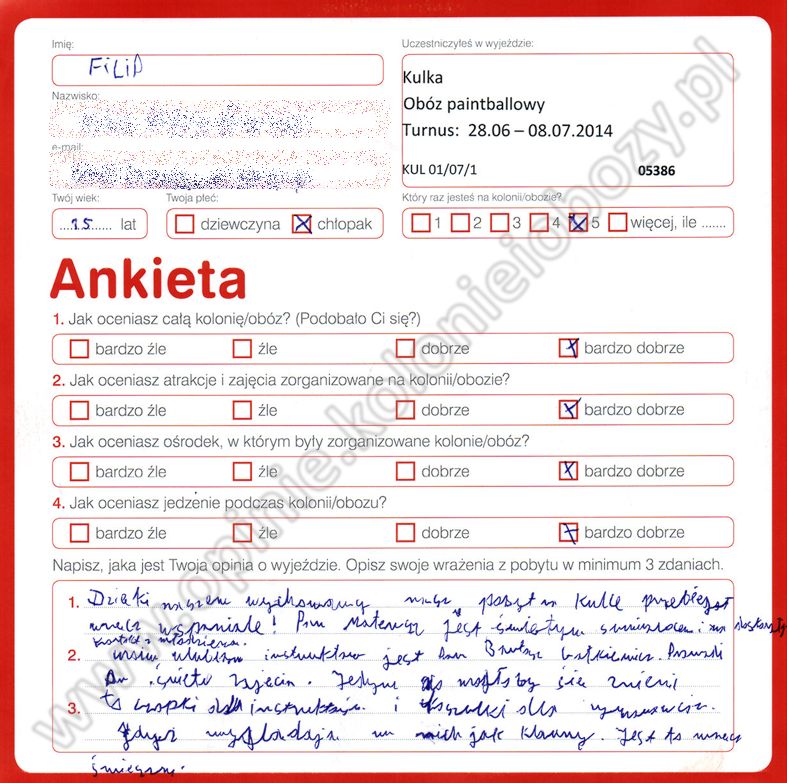 Imię:
FiLiP
Nazwisko:
e-mail:
Uczestniczyłeś w wyjeździe:
Kulka
Obóz paintballowy
Turnus: 28.06 – 08.07.2014
KUL 01/07/1 05386
Twój wiek:
....15...... lat
Twoja płeć:
dziewczyna chłopak
Który raz jesteś na kolonii/obozie?
1 2 3 4 5 więcej, ile .......
Ankieta
1. Jak oceniasz całą kolonię/obóz? (Podobało Ci się?)
bardzo źle źle dobrze bardzo dobrze
2. Jak oceniasz atrakcje i zajęcia zorganizowane na kolonii/obozie?
bardzo źle źle dobrze bardzo dobrze
3. Jak oceniasz ośrodek, w którym były zorganizowane kolonie/obóz?
bardzo źle źle dobrze bardzo dobrze
4. Jak oceniasz jedzenie podczas kolonii/obozu?
bardzo źle źle dobrze bardzo dobrze
Napisz, jaka jest Twoja opinia o wyjeździe. Opisz swoje wrażenia z pobytu w minimum 3 zdaniach.
1. Dzięki naszemu wychowawcy nasz pobyt w Kulce przebiegł
wręcz wspaniale! Pan Mateusz jest świetnym i ma doskonały
kontakt z młodzieżą.
2. instruktorem jest Pan
zajęcia. Jedyne co mogłoby się zmienić
3. to czapki dla instruktorów i koszulki dla
gdyż wyglądają w nich jak klauny. Jest to wręcz
śmieszne.
www.opinie.kolonieiobozy.pl